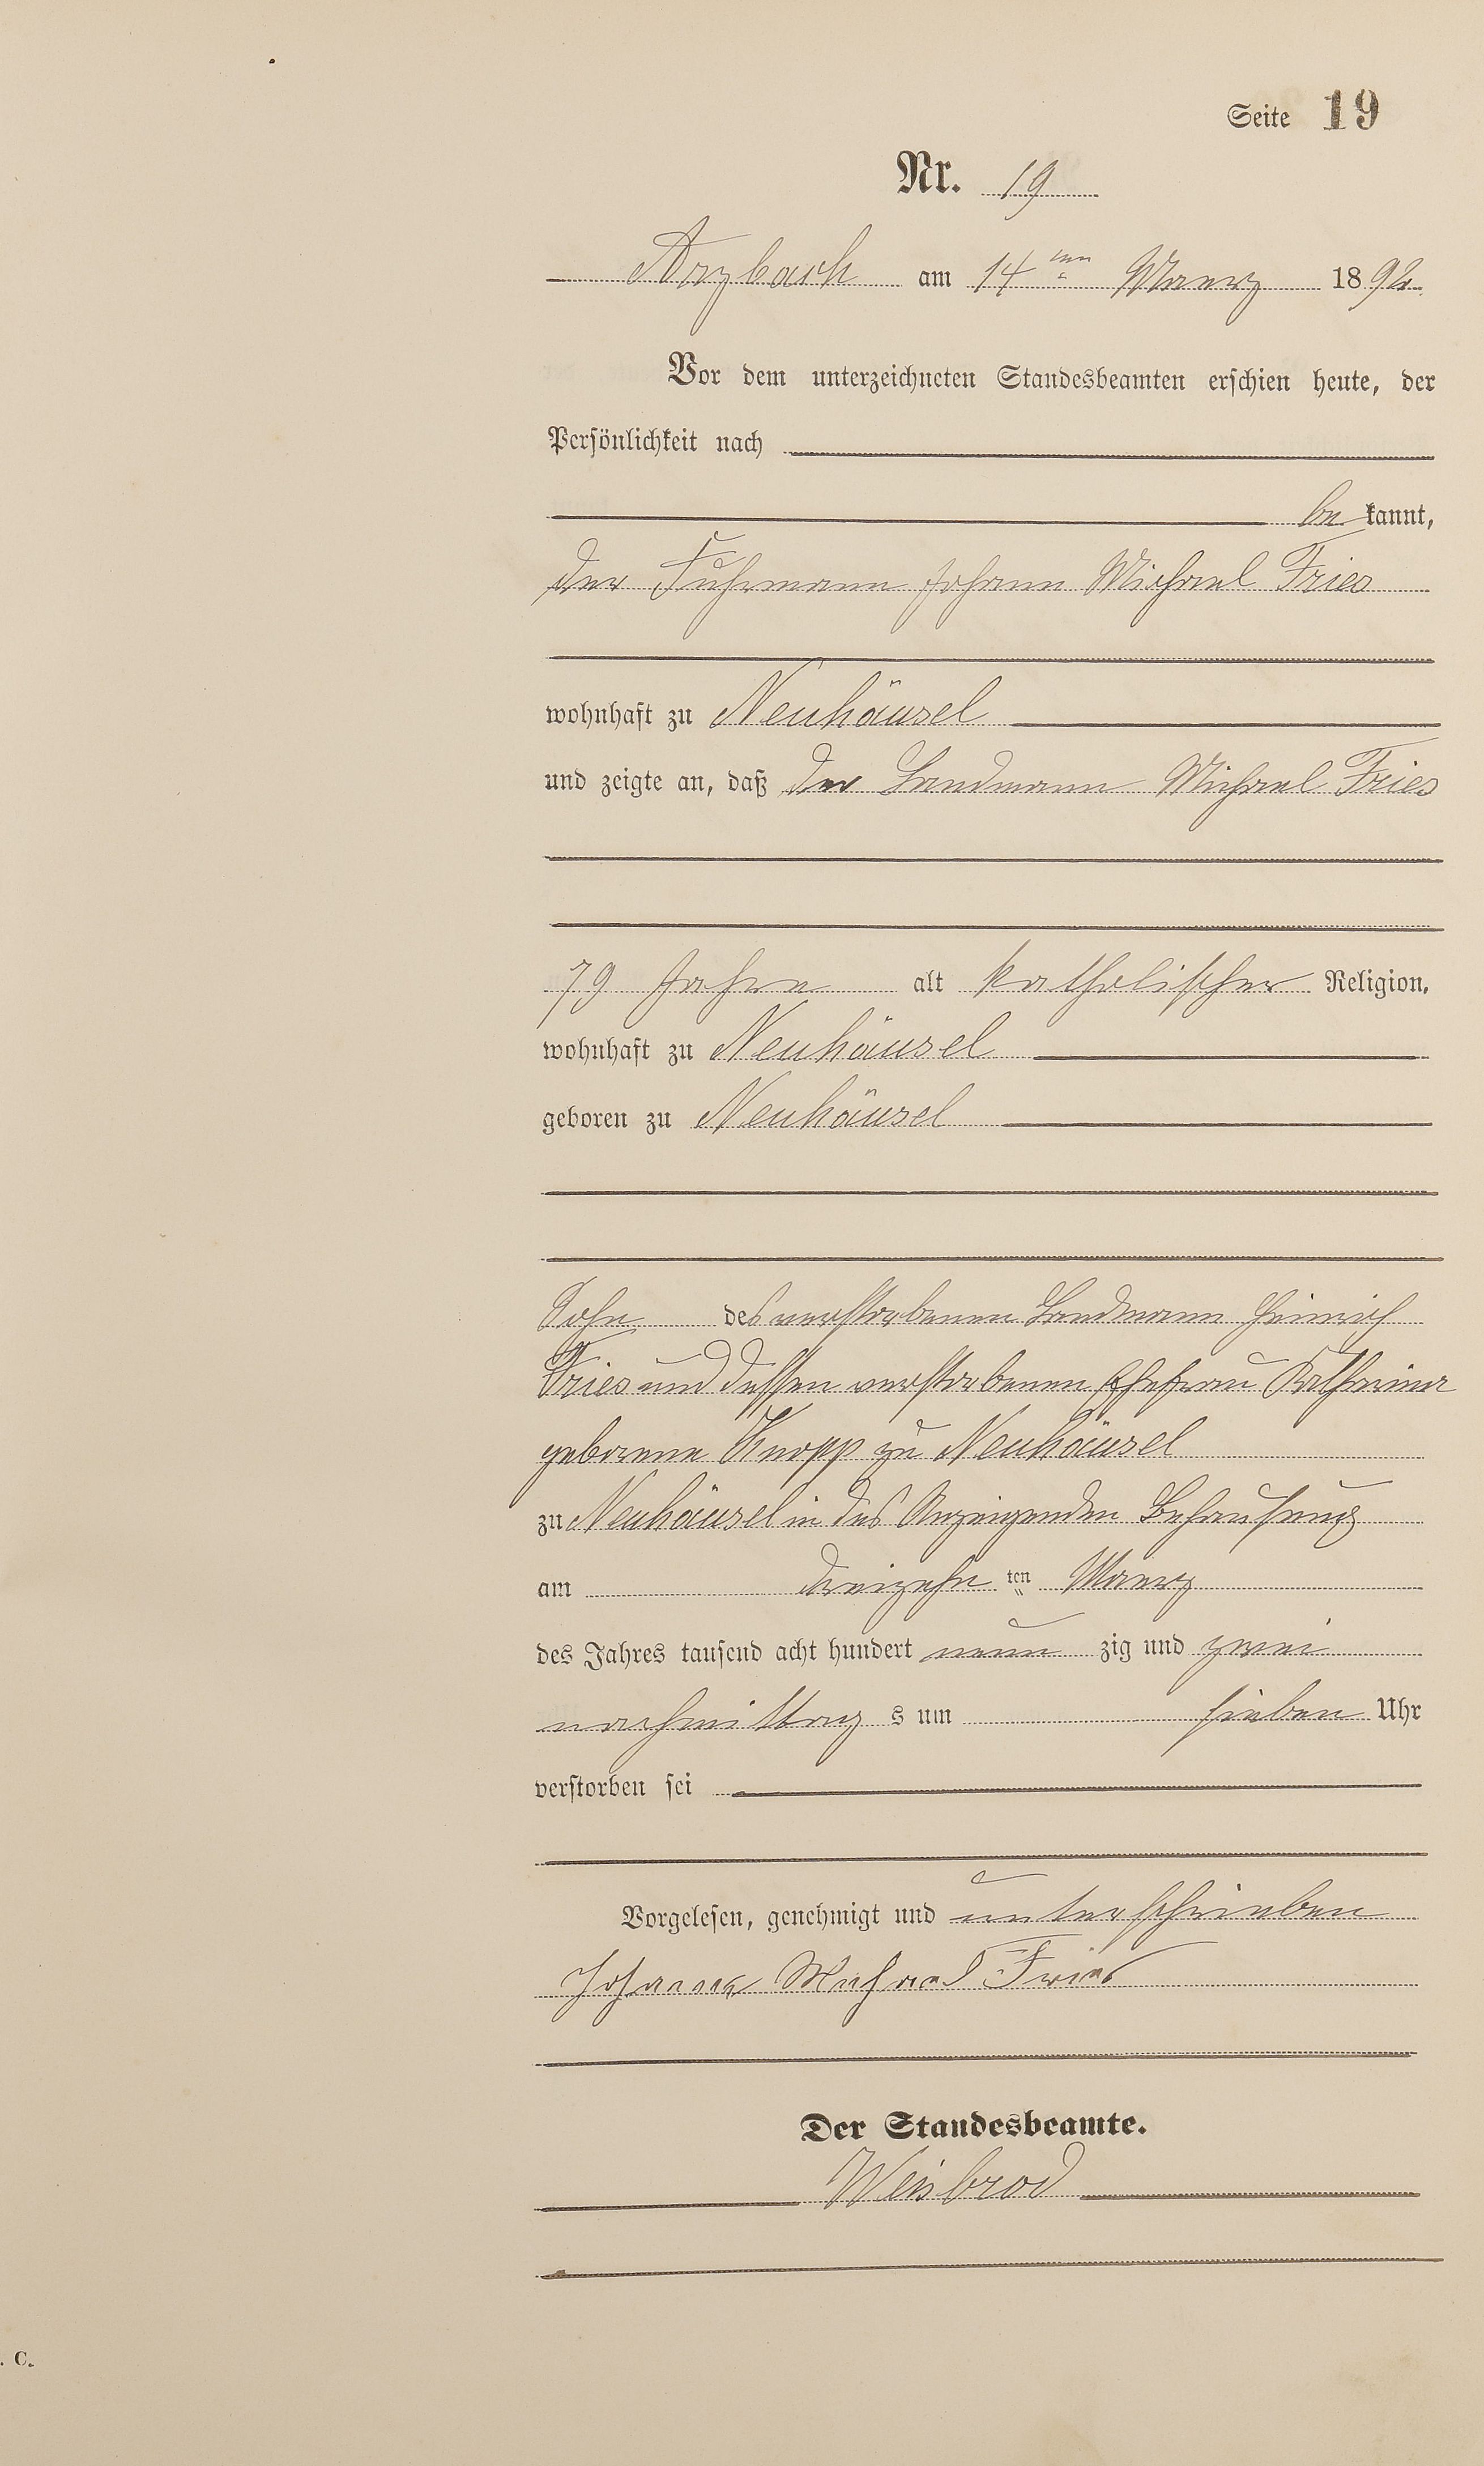 Seite 19
Nr. 19
Arzbach am 14ten Maerz 1892
Vor dem unterzeichneten Standesbeamten erschien heute, der
Persönlichkeit nach
be kannt,
der Fuhrmann Johann Michael Fries
wohnhaft zu Neuhäusel
und zeigte an, daß der Landmann Michael Fries
79 Jahre alt katholischer Religion,
wohnhaft zu Neuhäusel
geboren zu Neuhäusel
Sohn des verstorbenen Landmann Heinrich
Fries und dessen verstorbenen Ehefrau Katharina
geborene Knopp zu Neuhäusel
zu Neuhäusel in des Anzeigenden Behausung
am dreizehn ten Maerz
des Jahres tausend acht hundert neun zig und zwei
nachmittag s um sieben Uhr
verstorben sei
Vorgelesen, genehmigt und unterschrieben
Johann Michael Fries
Der Standesbeamte.
Weisbrod
. C.